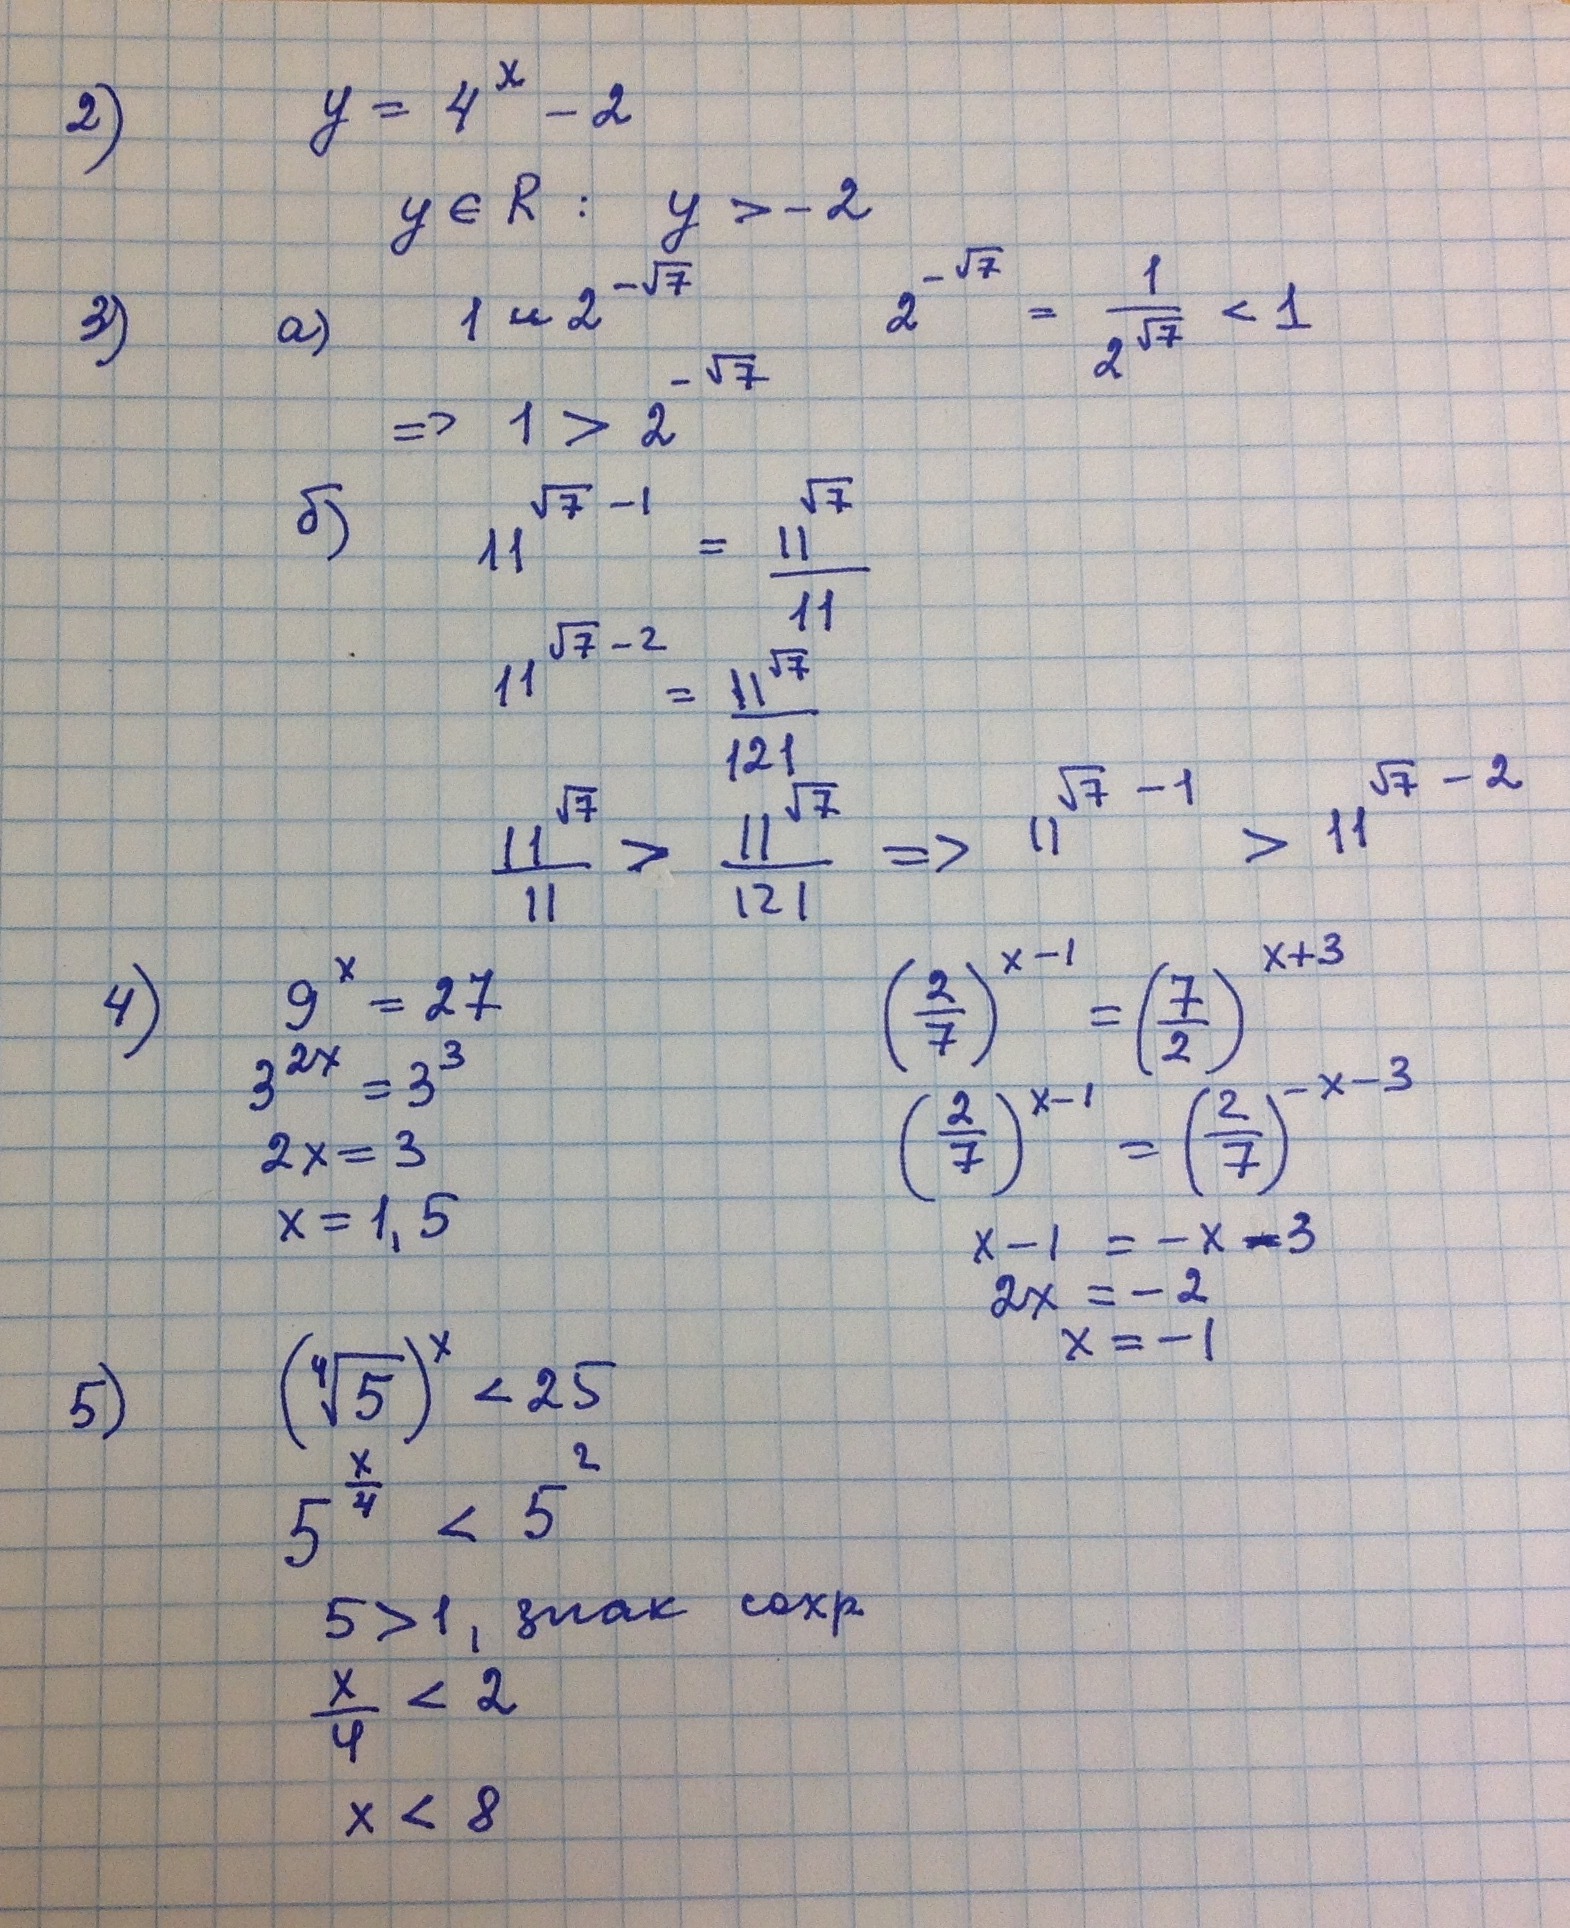 2) y = 4^x - 2
y ∈ R : y > -2
3) а) 1 и 2^{-√7} 2^{-√7} = \frac{1}{2^{√7}} < 1
=> 1 > 2^{-√7}
б) 11^{√7 - 1} = \frac{11^{√7}}{11}
11^{√7 - 2} = \frac{11^{√7}}{121}
\frac{11^{√7}}{11} > \frac{11^{√7}}{121} => 11^{√7 - 1} > 11^{√7 - 2}
4) 9^x = 27
3^{2x} = 3^3
2x = 3
x = 1,5
(\frac{2}{7})^{x-1} = (\frac{7}{2})^{x+3}
(\frac{2}{7})^{x-1} = (\frac{2}{7})^{-x-3}
x - 1 = -x - 3
2x = -2
x = -1
5) (∜5)^x < 25
5^{\frac{x}{4}} < 5^2
5 > 1, знак сохр
\frac{x}{4} < 2
x < 8